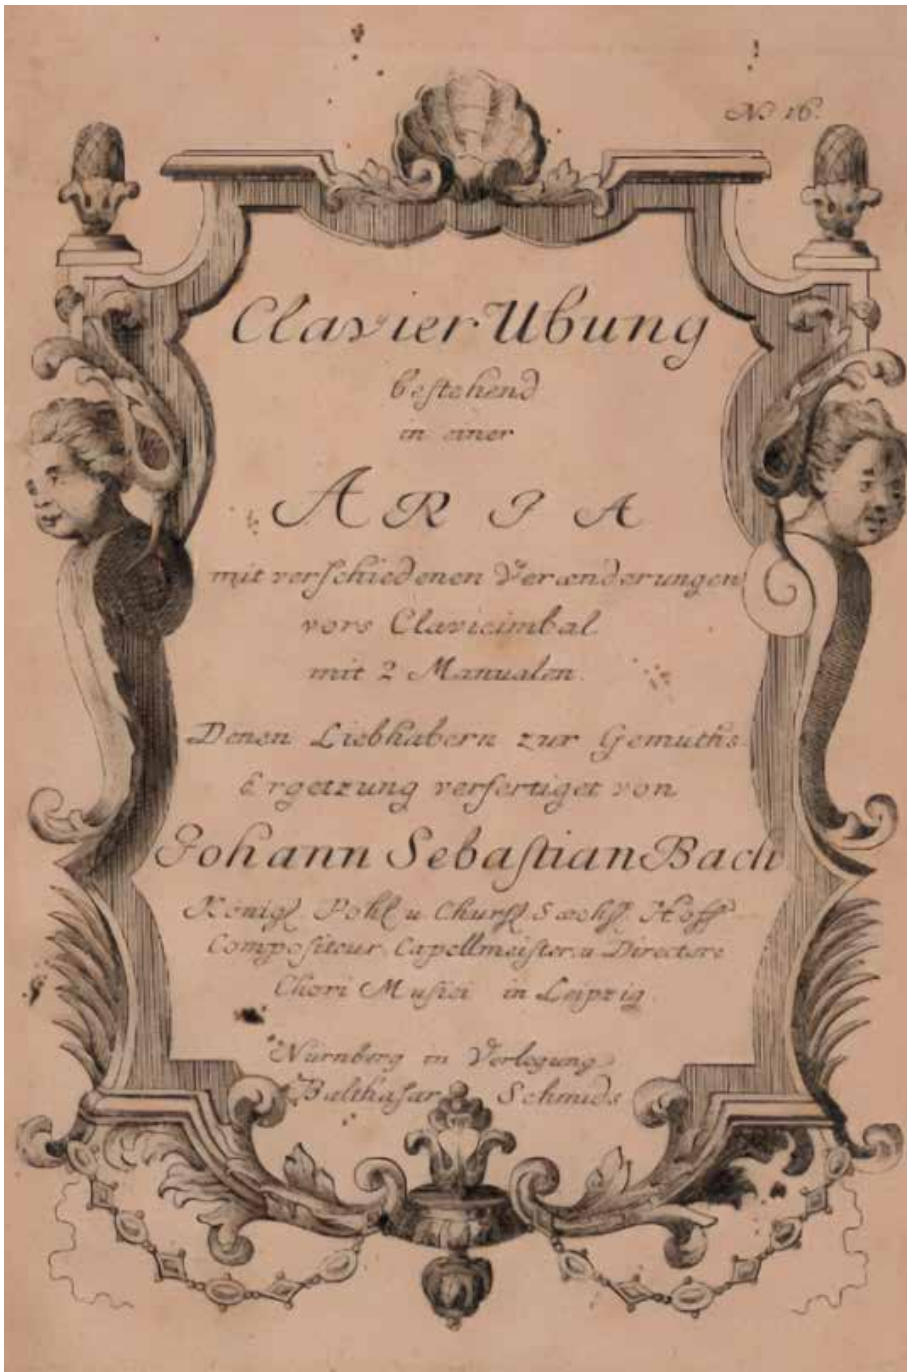 No 16.
Clavier Ubung
bestehend
in einer
ARIA
mit verschiedenen Verænderungen
vors Clavicimbal
mit 2 Manualen.
Denen Liebhabern zur Gemüths-
Ergetzung verfertiget von
Johann Sebastian Bach
Königl. Pohl. u. Churfl. Sæchs. Hoff-
Compositeur, Capellmeister, u. Directore
Chori Musici in Leipzig.
Nürnberg in Verlegung
Balthasar Schmids